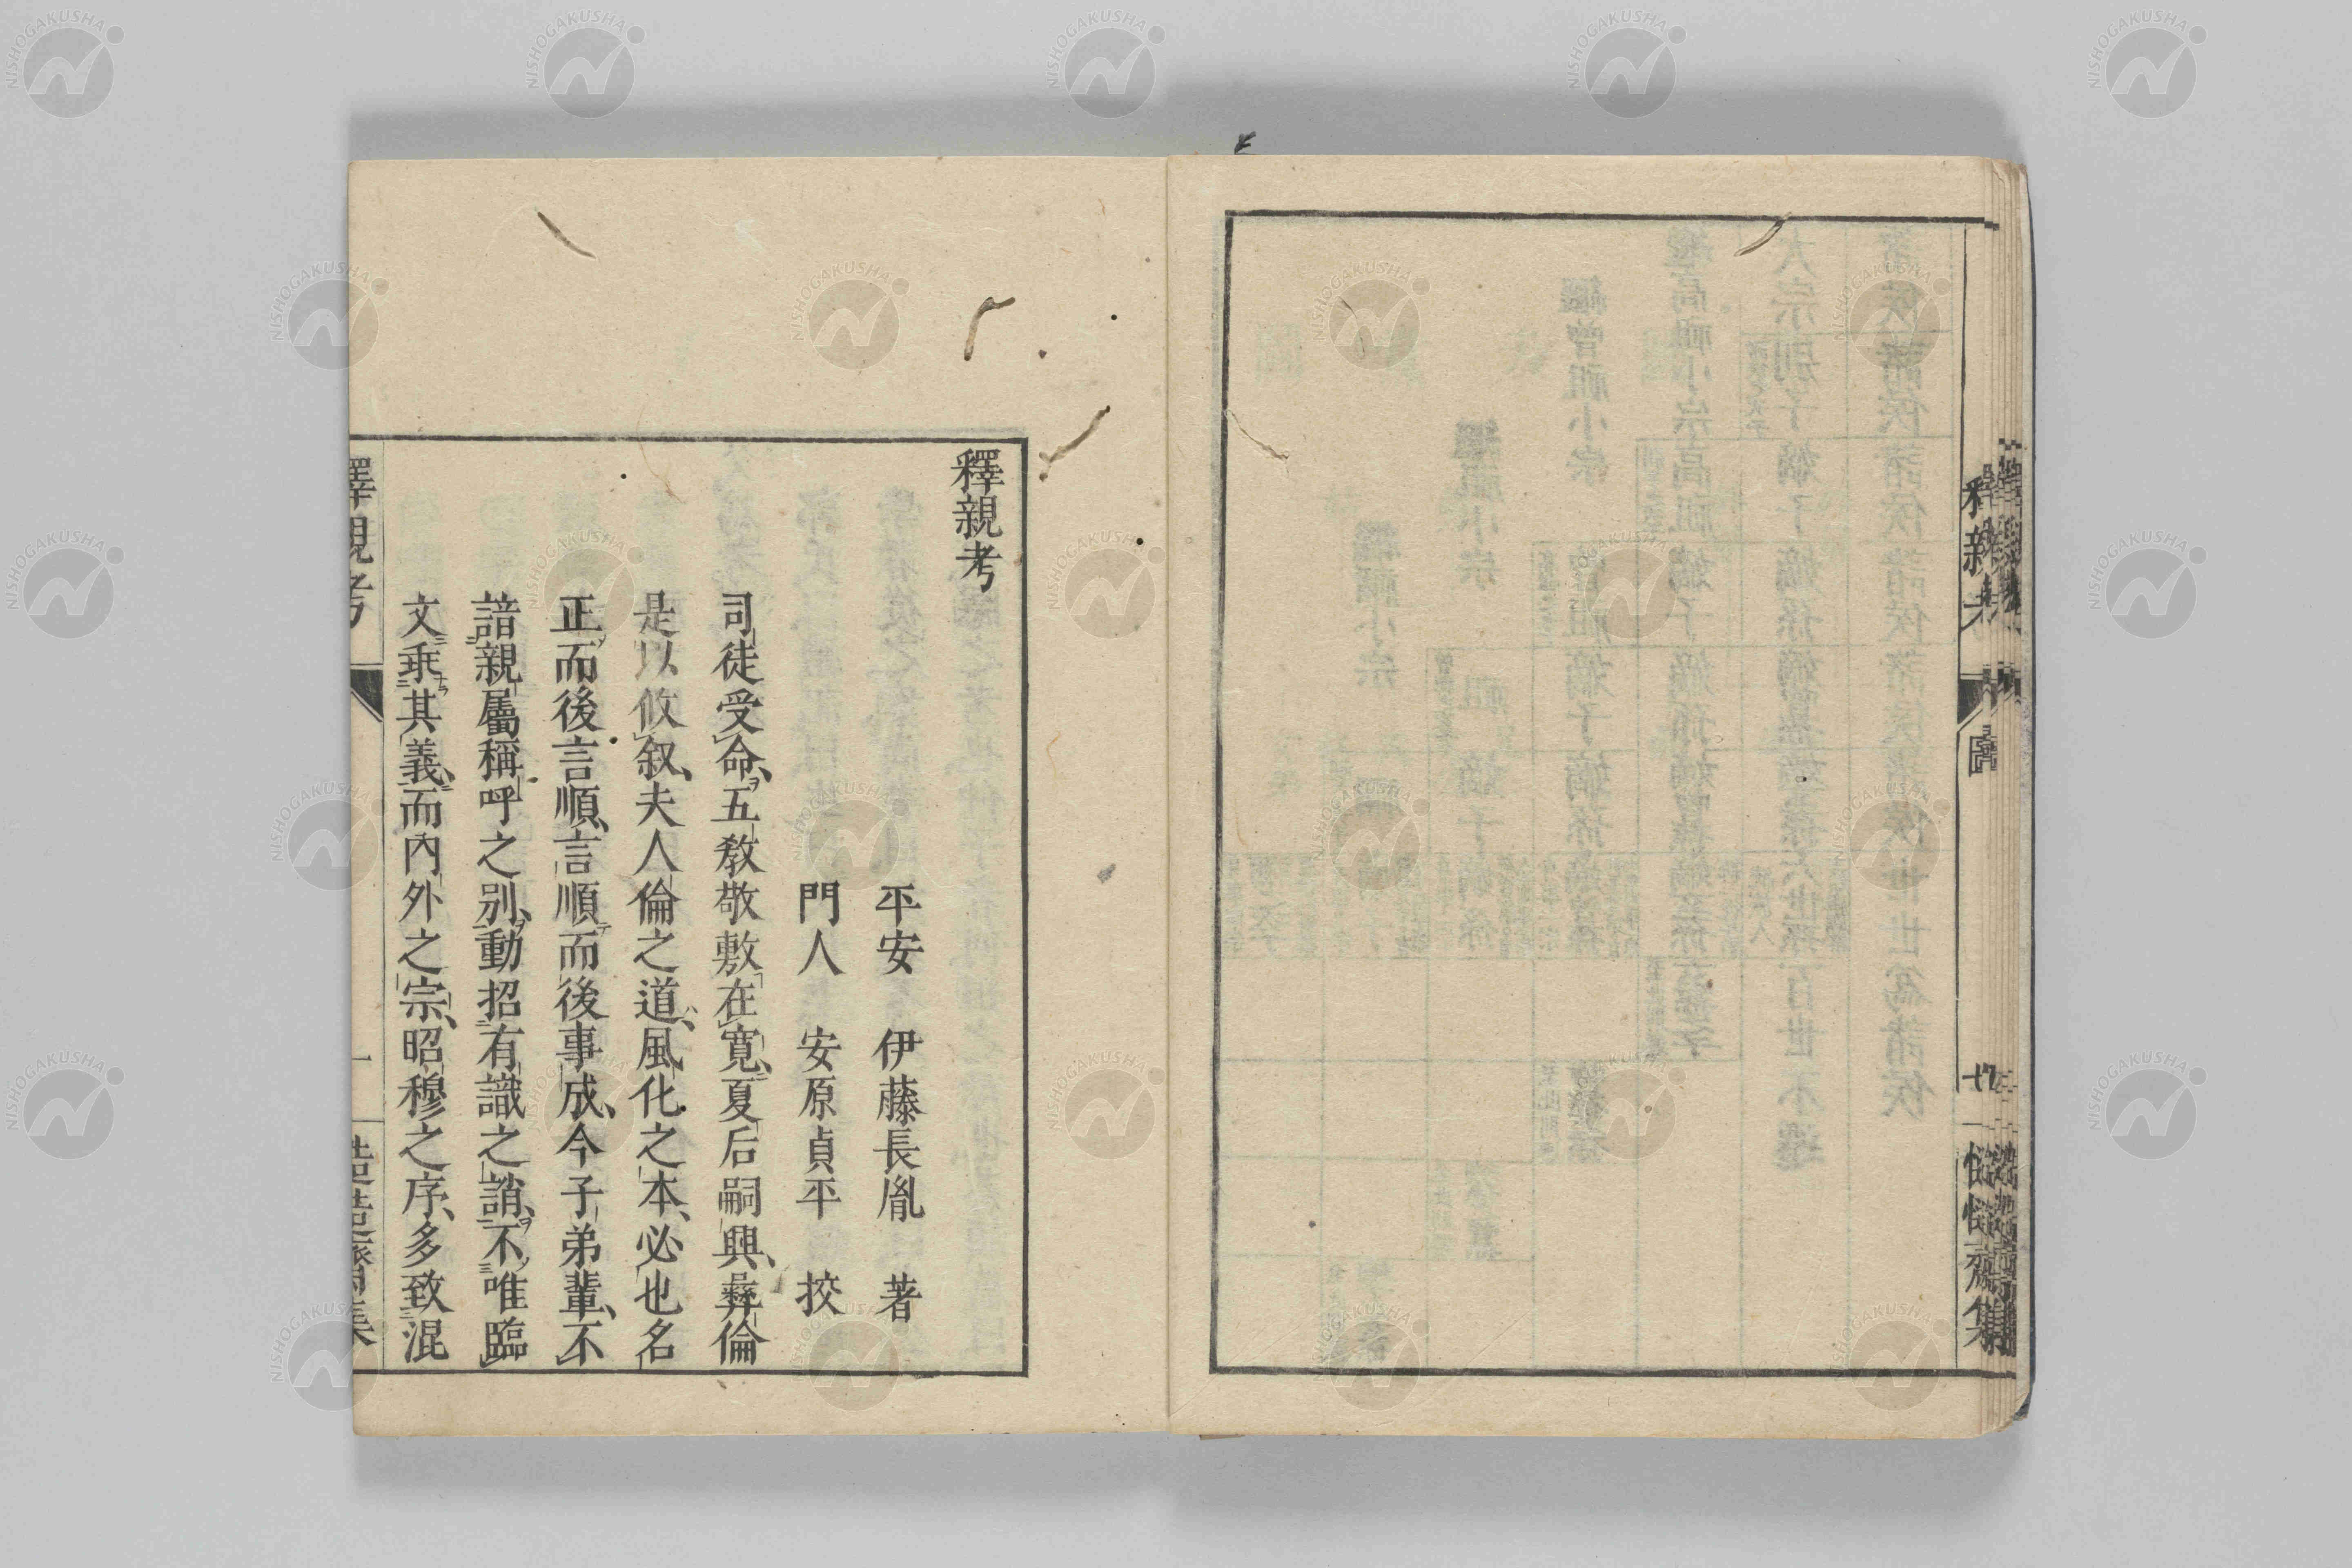 釋親考
圖
慥慥齋集
釋親考
平安 伊藤長胤 著
門人 安原貞平 挍
司徒受命五敎敬敷在寛夏后嗣興彝倫
是以攸叙夫人倫之道風化之本必也名
正而後言順言順而後事成今子弟輩不
諳親屬稱呼之别動招有識之誚不唯臨
文乖其義而內外之宗昭穆之序多致混
釋親考
一
NISHOGAKUSHA